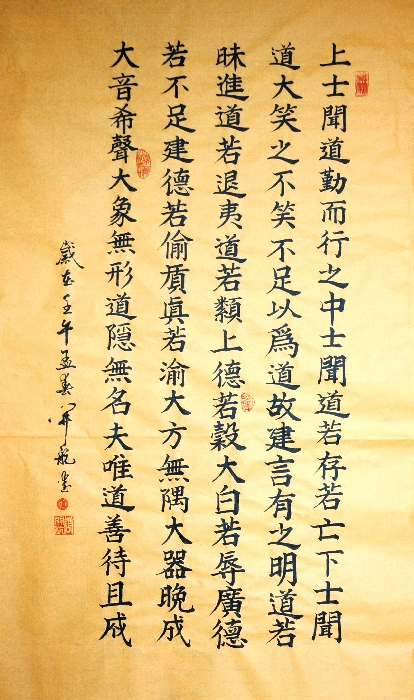 上士聞道勤而行之中士聞道若存若亡下士聞
道大笑之不笑不足以爲道故建言有之明道若
昧進道若退夷道若纇上德若穀大白若辱廣德
若不足建德若偷質眞若渝大方無隅大器晚成
大音希聲大象無形道隱無名夫唯道善待且成
歲在壬午孟春開航書